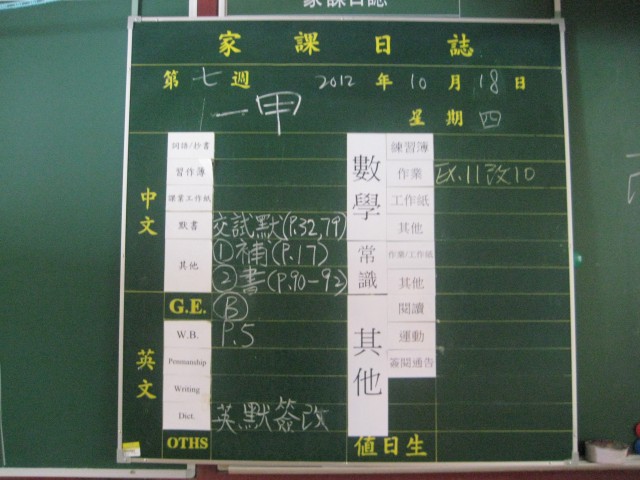 家課日誌
家課日誌
第七週 2012年10月18日
一甲 星期四
中文
詞語/抄書
習作簿
課業工作紙
默書 交試默(P.32,79)
其他 ①補(P.17)
②書(P.90-92)
英文
G.E. Ⓑ
W.B. P.5
Penmanship
Writing
Dict. 英默簽改
OTHS
數學
練習簿
作業 Ex.11改10
工作紙
其他
常識
作業/工作紙
其他
其他
閱讀
運動
簽閱通告
值日生